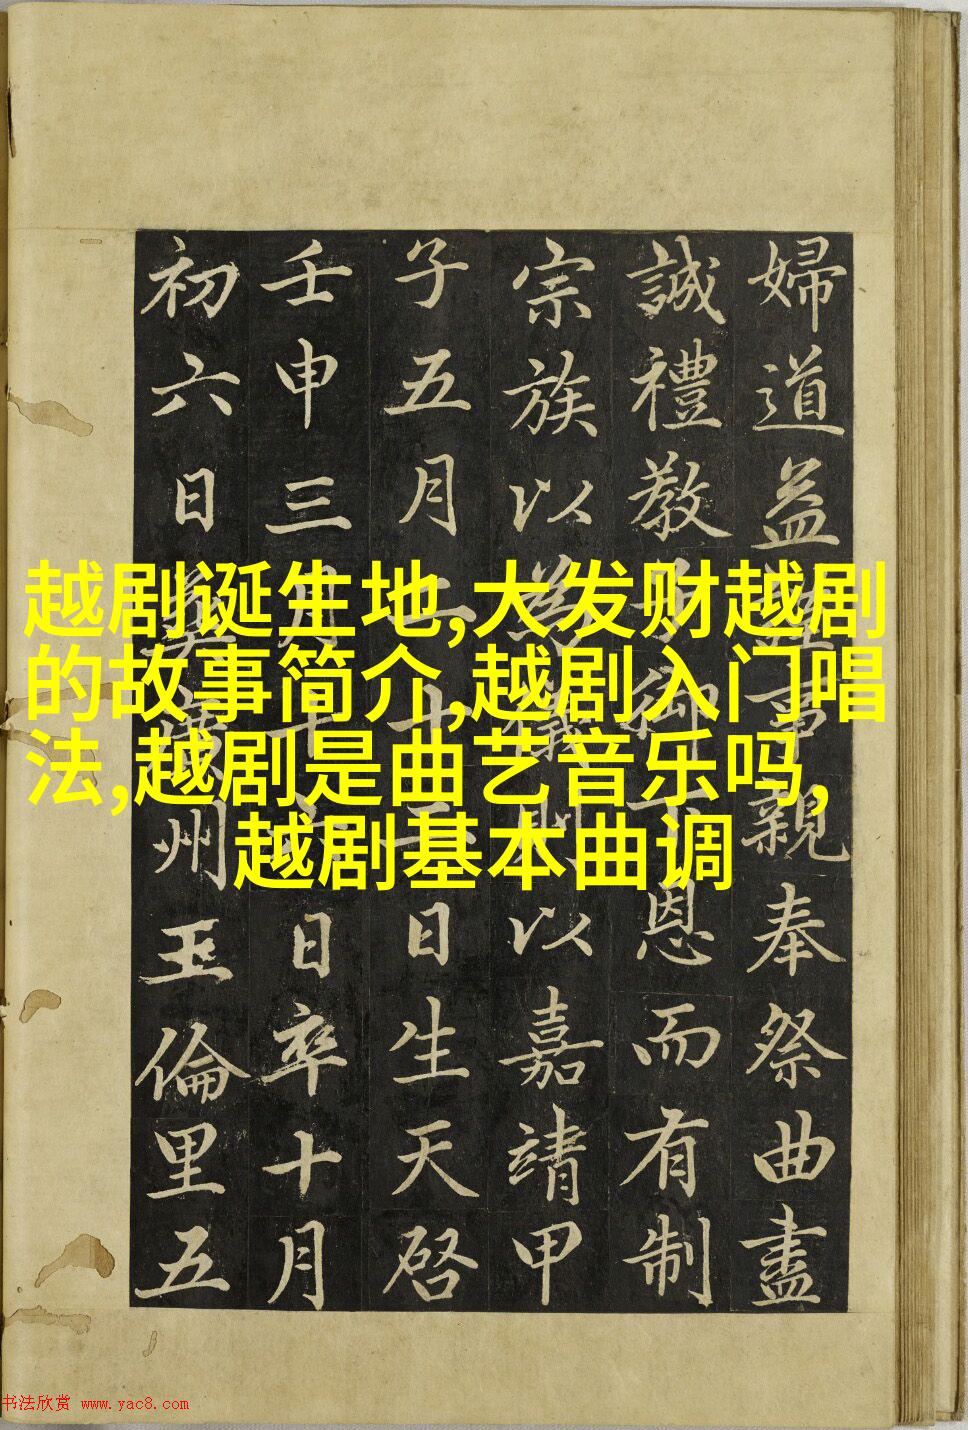 越剧诞生地,大发财越剧
的故事简介,越剧入门唱
法,越剧是曲艺音乐吗,
越剧基本曲调
婦道益事親奉祭曲盡
誠禮教子御下恩而有制
宗族以為則以嘉靖甲
子五月二十日生天啓
壬申三月十日卒十月
初六日葬州玉倫里五
书法欣赏 www.yac8.com